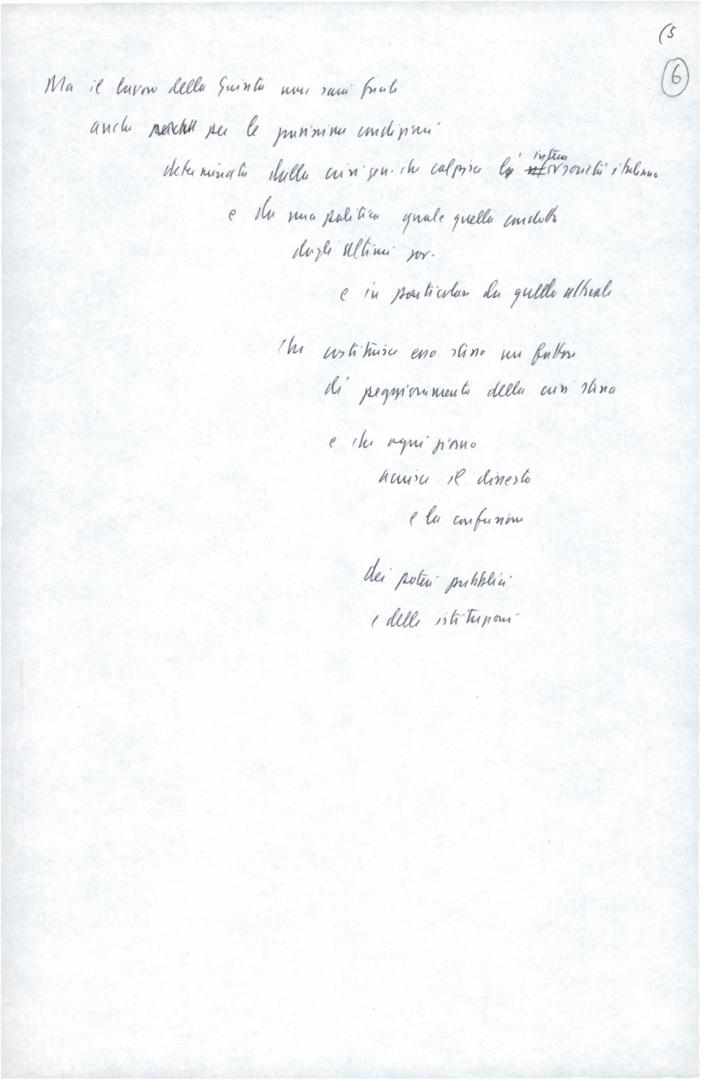 (5
6
Ma il lavoro della Giunta non sarà facile
anche per le condizioni
determinate dalla crisi gen. che colpisce l'intera società italiana
e da una politica quale quella condotta
dagli ultimi gov.
e in particolare da quello attuale
che costituisce esso stesso un fattore
di peggioramento della crisi stessa
e che ogni giorno
acuisce il dissesto
e la confusione
dei poteri pubblici
e delle istituzioni